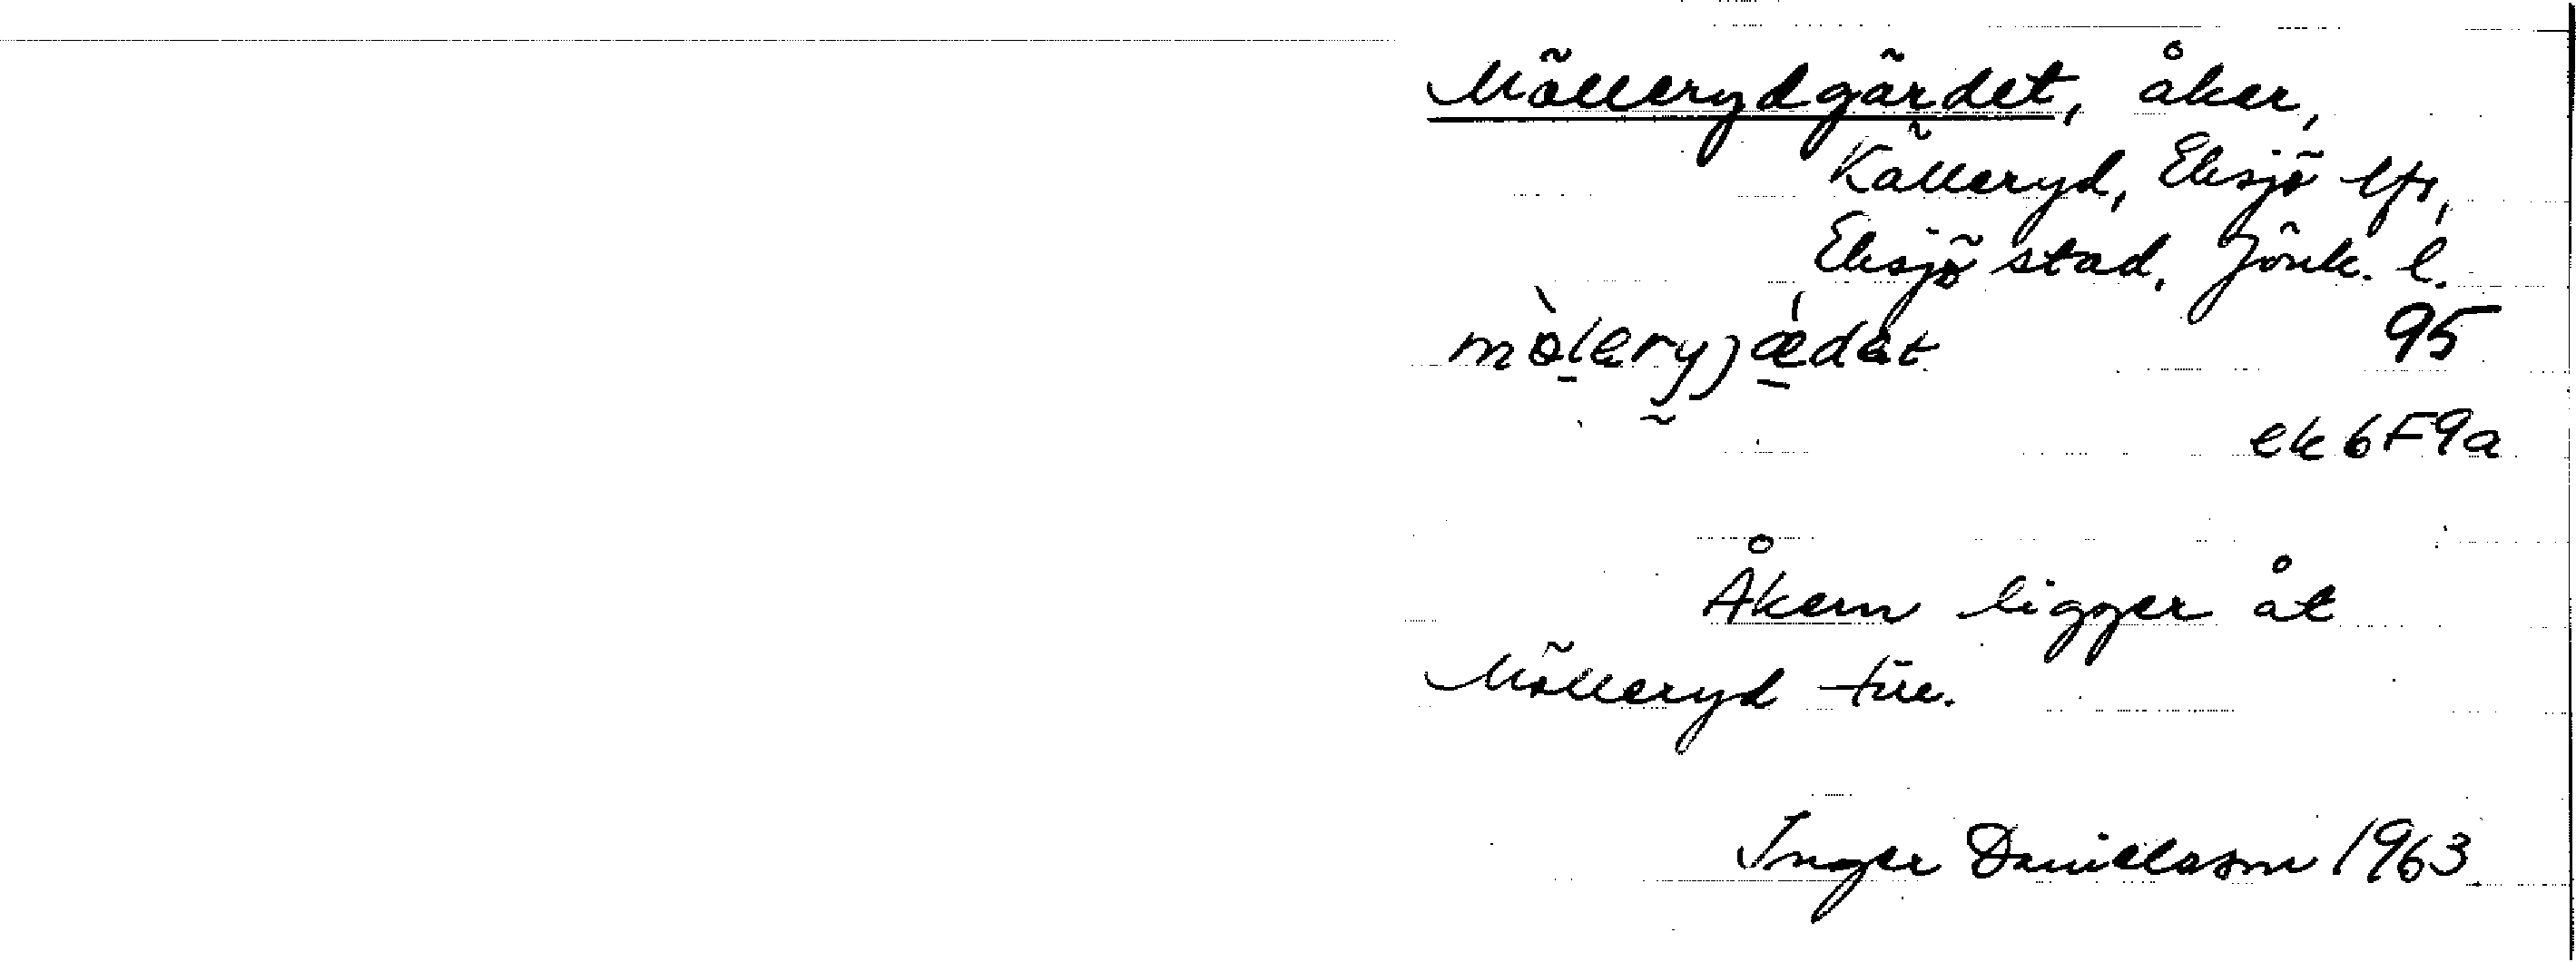 Möllerydgärdet, åker,
Källeryd, Eksjö lfs,
Eksjö stad, Jönk. l.
mò̱leryjæ̱̀dət 95
ek 6F9a
Åkern ligger åt
Mölleryd till.
Inger Danielsson 1963